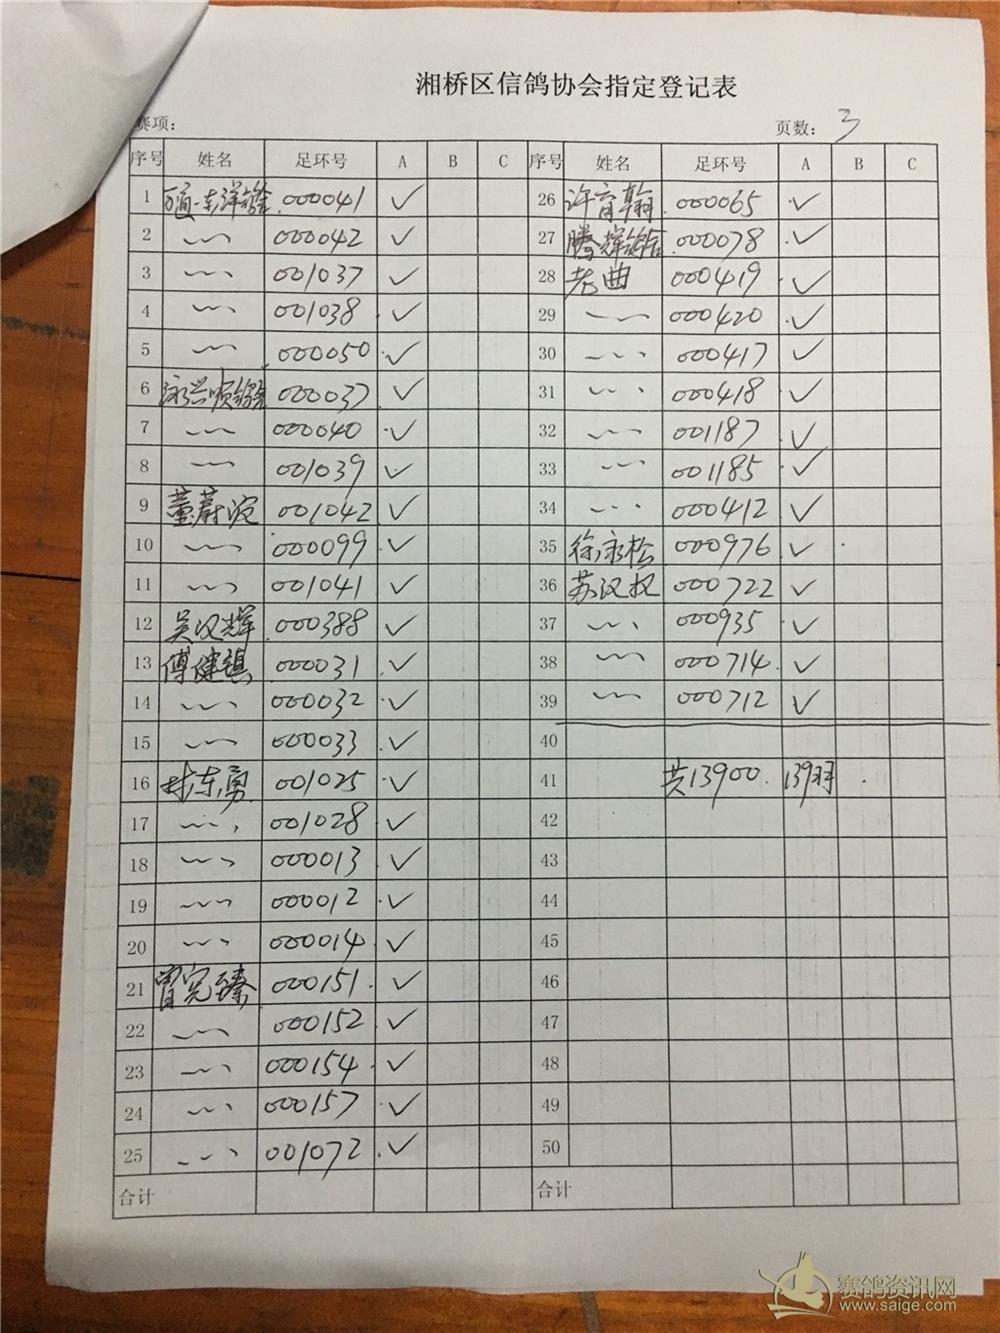 湘桥区信鸽协会指定登记表
赛项: 页数: 3
序号 姓名 足环号 A B C 序号 姓名 足环号 A B C
1 万通-东洋鸽舍 000041 ✓ 26 许育翰 000065 ✓
2 〃 000042 ✓ 27 腾辉鸽舍 000078 ✓
3 〃 001037 ✓ 28 老曲 000419 ✓
4 〃 001038 ✓ 29 〃 000420 ✓
5 〃 000050 ✓ 30 〃 000417 ✓
6 泳兴顺鸽舍 000037 ✓ 31 〃 000418 ✓
7 〃 000040 ✓ 32 〃 001187 ✓
8 〃 001039 ✓ 33 〃 001185 ✓
9 董蔚 001042 ✓ 34 〃 000412 ✓
10 〃 000099 ✓ 35 徐永松 000976 ✓
11 〃 001041 ✓ 36 苏汉权 000722 ✓
12 吴汉辉 000388 ✓ 37 〃 000935 ✓
13 傅健镇 000031 ✓ 38 〃 000714 ✓
14 〃 000032 ✓ 39 〃 000712 ✓
15 〃 000033 ✓ 40
16 林东勇 001025 ✓ 41 共13900. 139羽
17 〃 001028 ✓ 42
18 〃 000013 ✓ 43
19 〃 000012 ✓ 44
20 〃 000014 ✓ 45
21 曾宪臻 000151 ✓ 46
22 〃 000152 ✓ 47
23 〃 000154 ✓ 48
24 〃 000157 ✓ 49
25 〃 001072 ✓ 50
合计 合计
赛鸽资讯网
www.saige.com